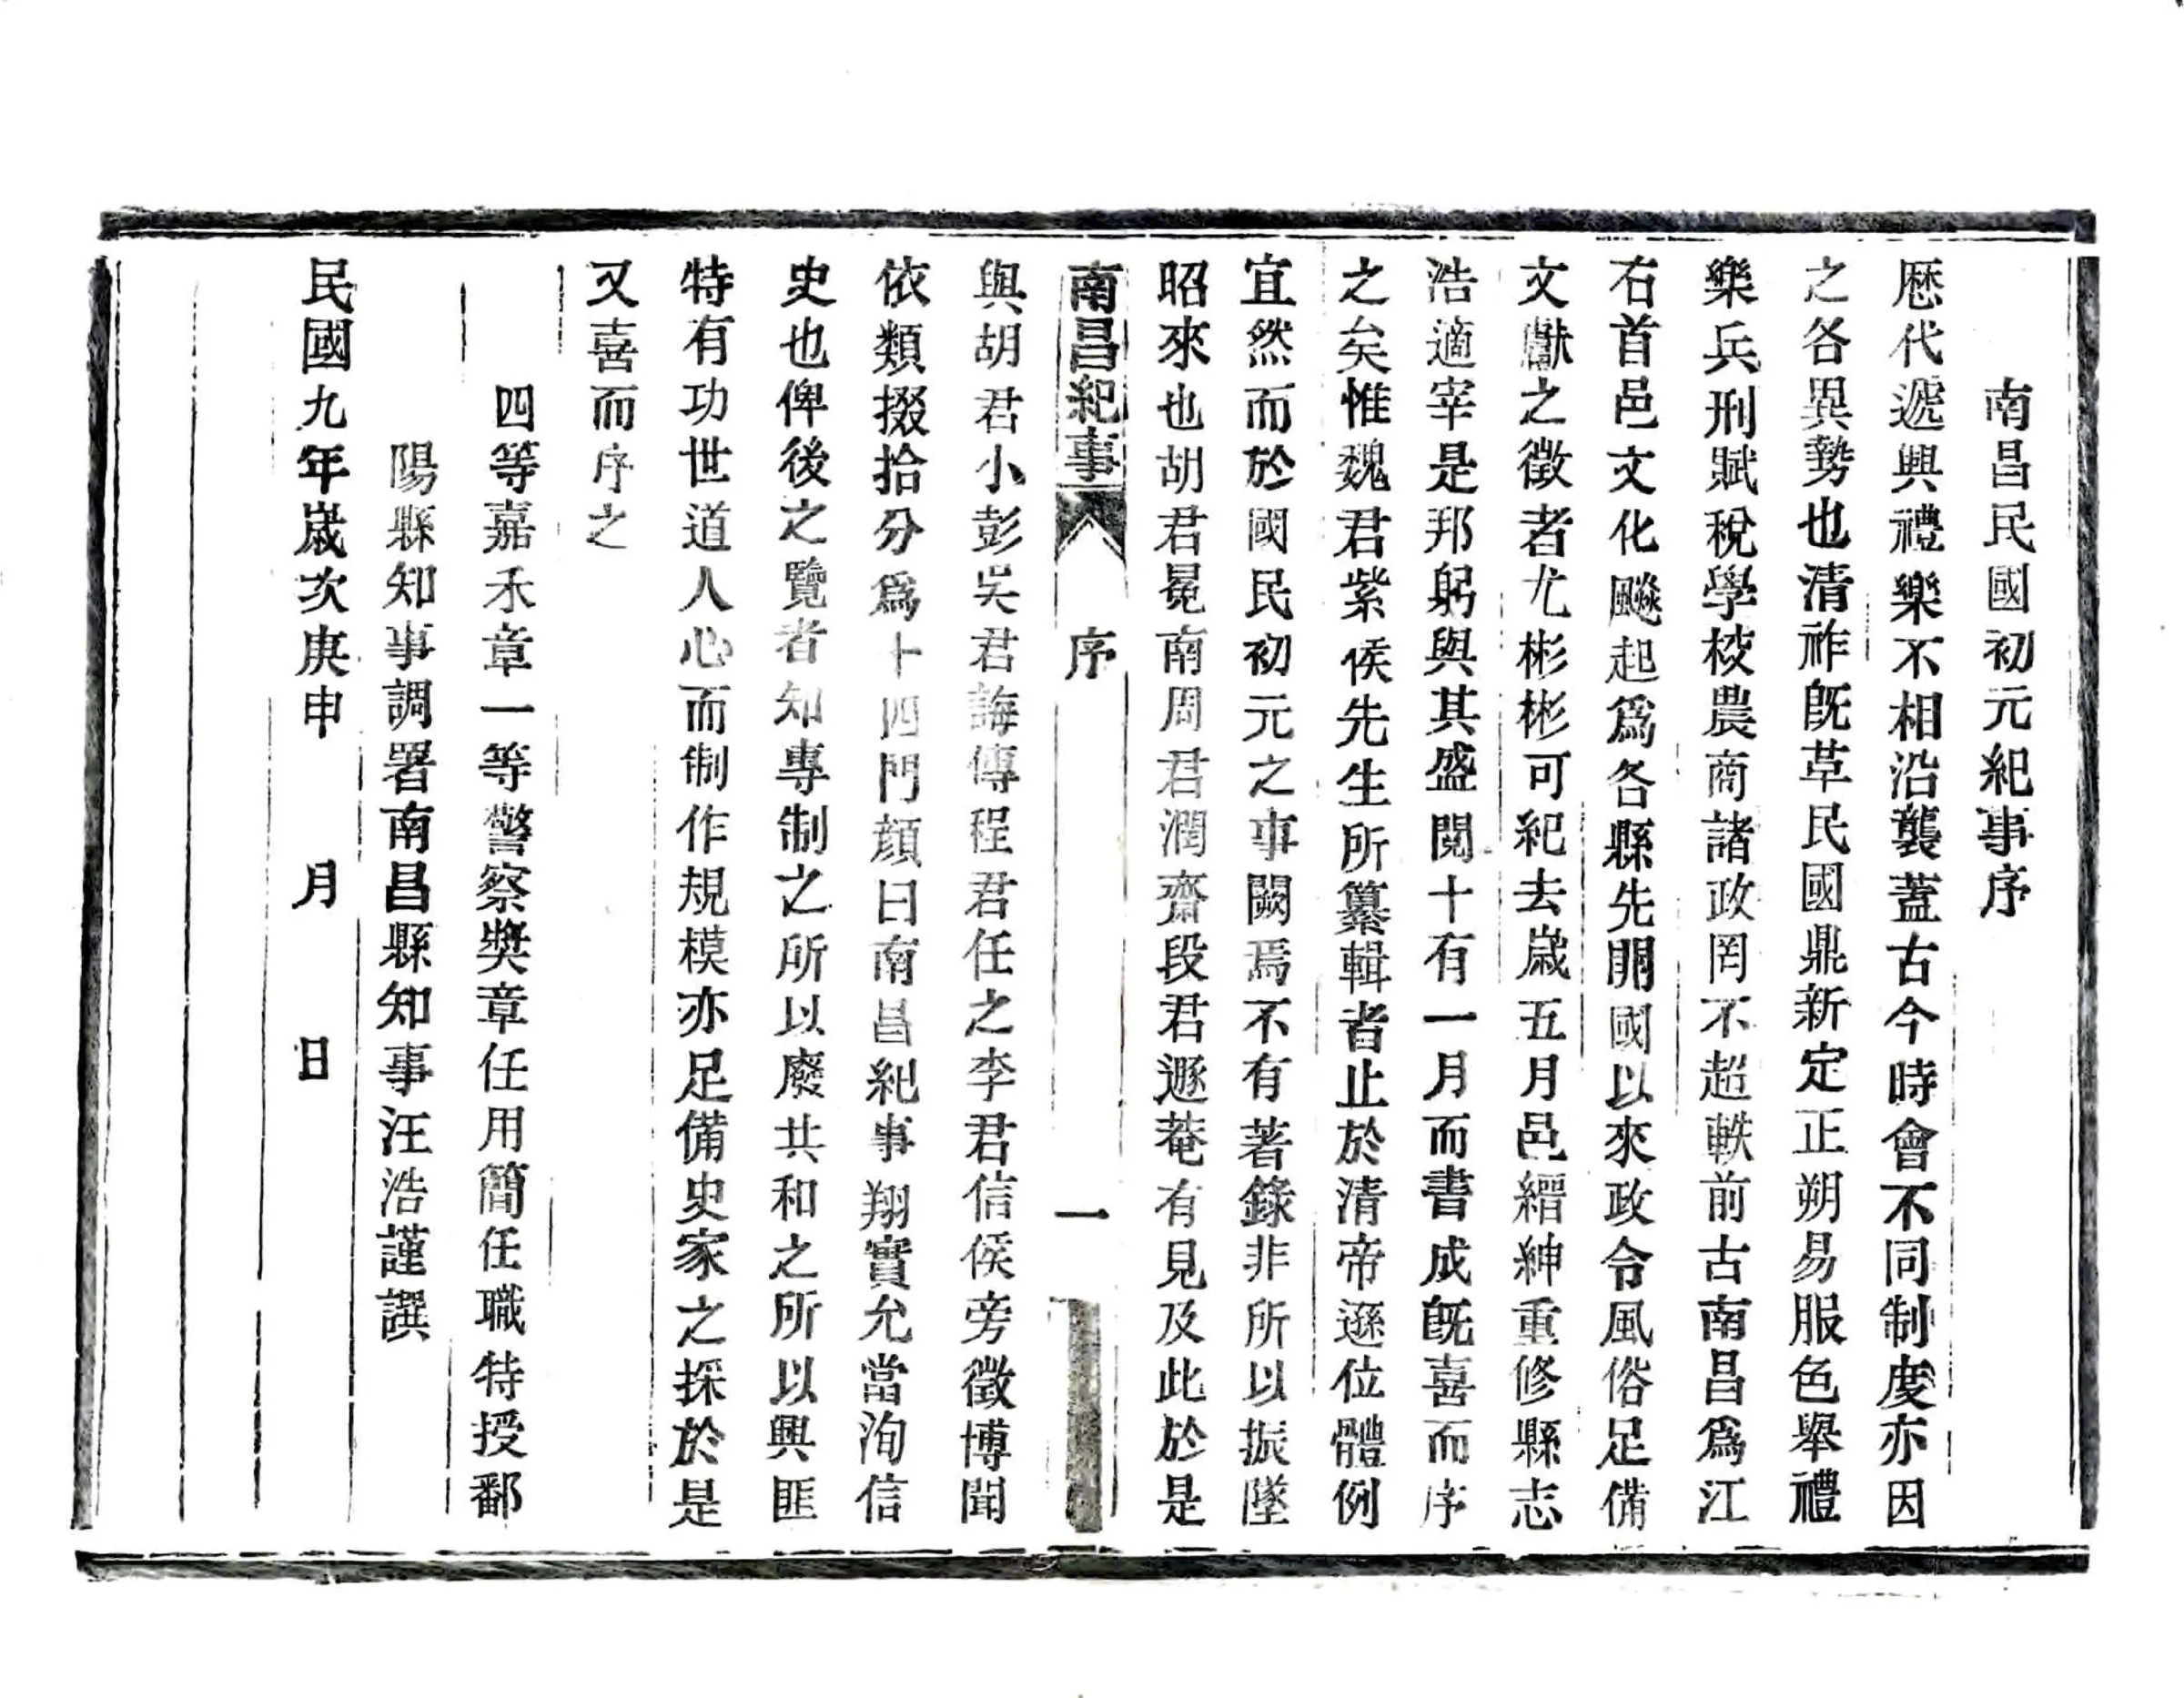 南昌民國初元紀事序
歷代遞興禮樂不相沿襲蓋古今時會不同制度亦因
之各異勢也清祚既革民國鼎新定正朔易服色舉禮
樂兵刑賦稅學校農商諸政罔不超軼前古南昌爲江
右首邑文化飈起爲各縣先開國以來政令風俗足備
文獻之徵者尤彬彬可紀去歲五月邑縉紳重修縣志
浩適宰是邦躬與其盛閱十有一月而書成既喜而序
之矣惟魏君紫侯先生所纂輯者止於清帝遜位體例
宜然而於國民初元之事闕焉不有著錄非所以振墜
昭來也胡君冕南周君潤齋段君遯菴有見及此於是
南昌紀事
序
一
與胡君小彭吳君誨傳程君任之李君信侯旁徵博聞
依類掇拾分爲十四門顏曰南昌紀事翔實允當洵信
史也俾後之覽者知專制之所以廢共和之所以興匪
特有功世道人心而制作規模亦足備史家之採於是
又喜而序之
四等嘉禾章一等警察獎章任用簡任職特授鄱
陽縣知事調署南昌縣知事汪浩謹譔
民國九年歲次庚申 月 日